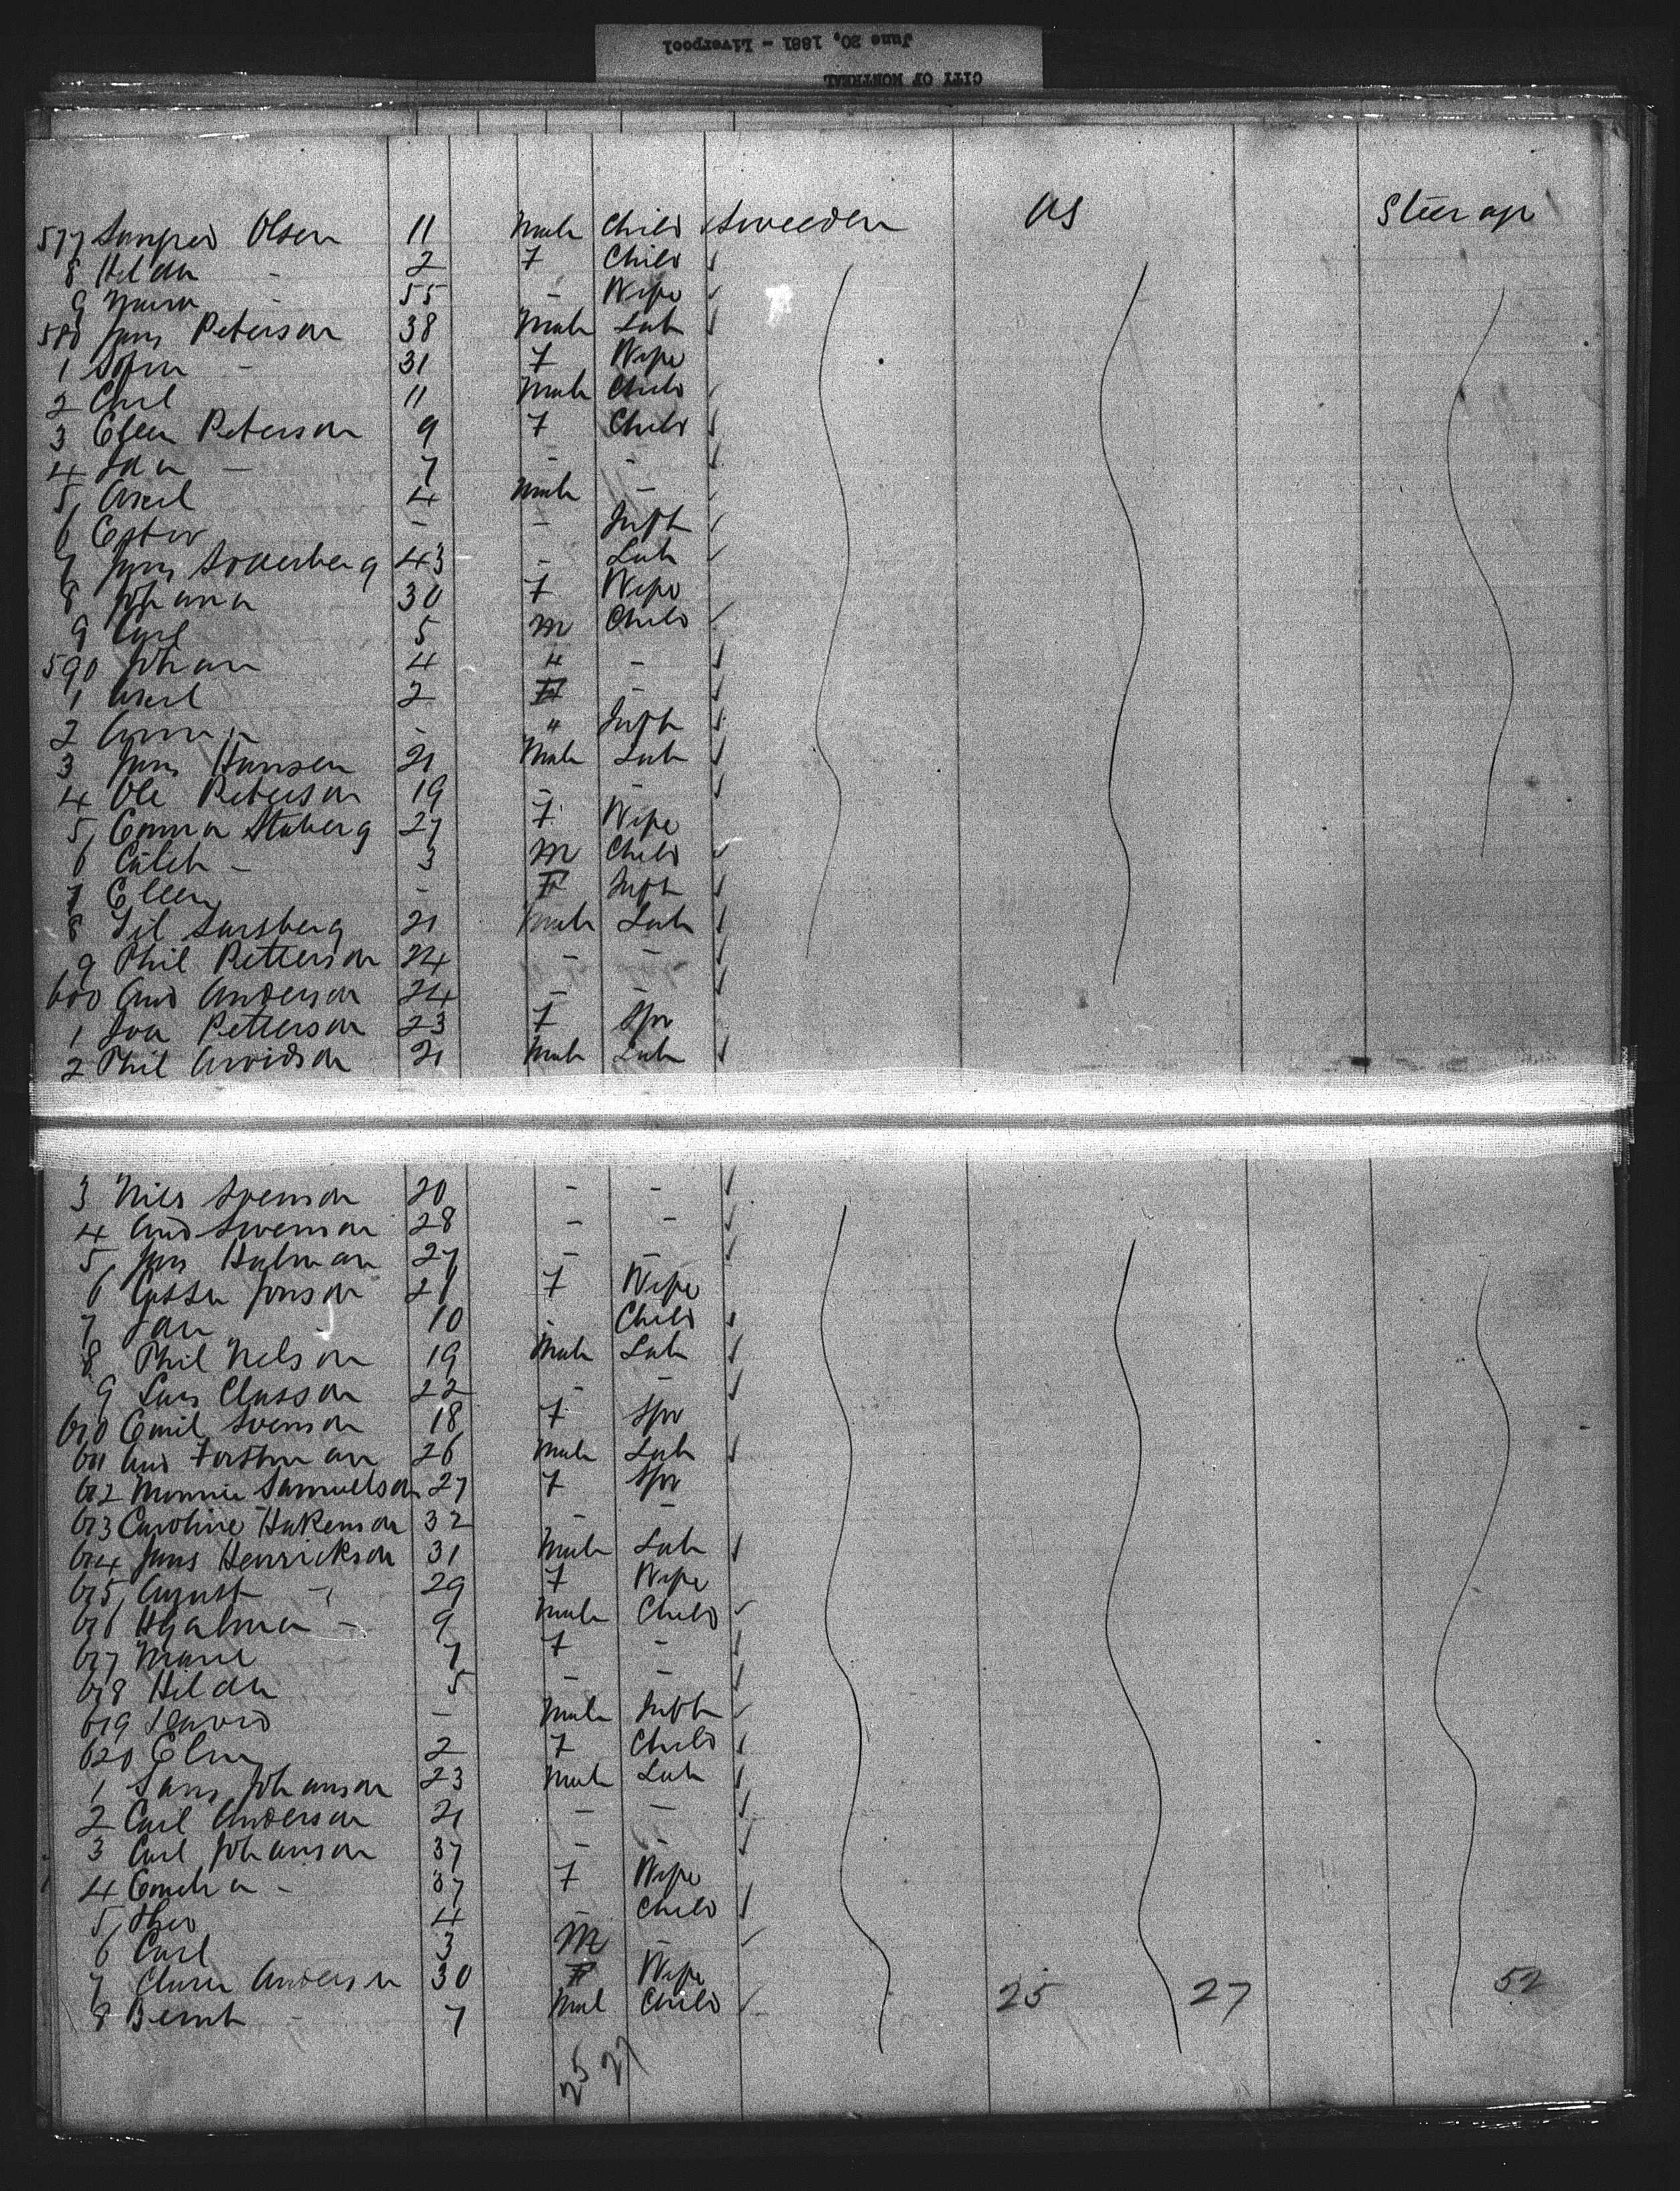 CITY OF MONTREAL
June 20, 1881 - Liverpool
577 Olsen 11 Male Child Sweeden US Steerage
8 Hilda - 2 F Child
9 - 55 - Wife
580 Jans Peterson 38 Male Lab
1 - 31 F Wife
2 Carl 11 Male Child
3 Ellen Peterson 9 F Child
4 Ida - 7 - -
5 Axel 4 Male -
6 - - Inft
7 Jans Soderberg 43 - Lab
8 Johana 30 F Wife
9 Carl 5 M Child
590 Johan 4 " -
1 Axel 2 -
2 Anna - " Inft
3 Jans Hansen 21 Male Lab
4 Ole Peterson 19 - -
5 Emma Staberg 27 F Wife
6 - 3 M Child
7 Ellen - F Inft
8 Larsberg 21 Male Lab
9 Phil Petterson 24 - -
600 And Anderson 24 - -
1 Petterson 23 F Spr
2 Phil Arvidson 21 Male Lab
3 Nils Svenson 20 - -
4 And Swenson 28 - -
5 Jans Halman 27 - -
6 Jonson 21 F Wife
7 - 10 - Child
8 Phil Nelson 19 Male Lab
9 Lars Classon 22 - -
610 Emil Svenson 18 F Spr
611 And Forstman 26 Male Lab
612 Minnie Samuelson 27 F Spr
613 Caroline Hakenson 32 - -
614 Jans Henrickson 31 Male Lab
615 August - 29 F Wife
616 Hjalmar - 9 Male Child
617 Marie 7 F -
618 Hilda 5 - -
619 David - Male Inft
620 2 F Child
1 Johanson 23 Male Lab
2 Carl Anderson 21 - -
3 Carl Johanson 37 - -
4 - 37 F Wife
5 4 - Child
6 Carl 3 M -
7 Clara Anderson 30 F Wife
8 - 7 Mal Child
25 27 52
25 27